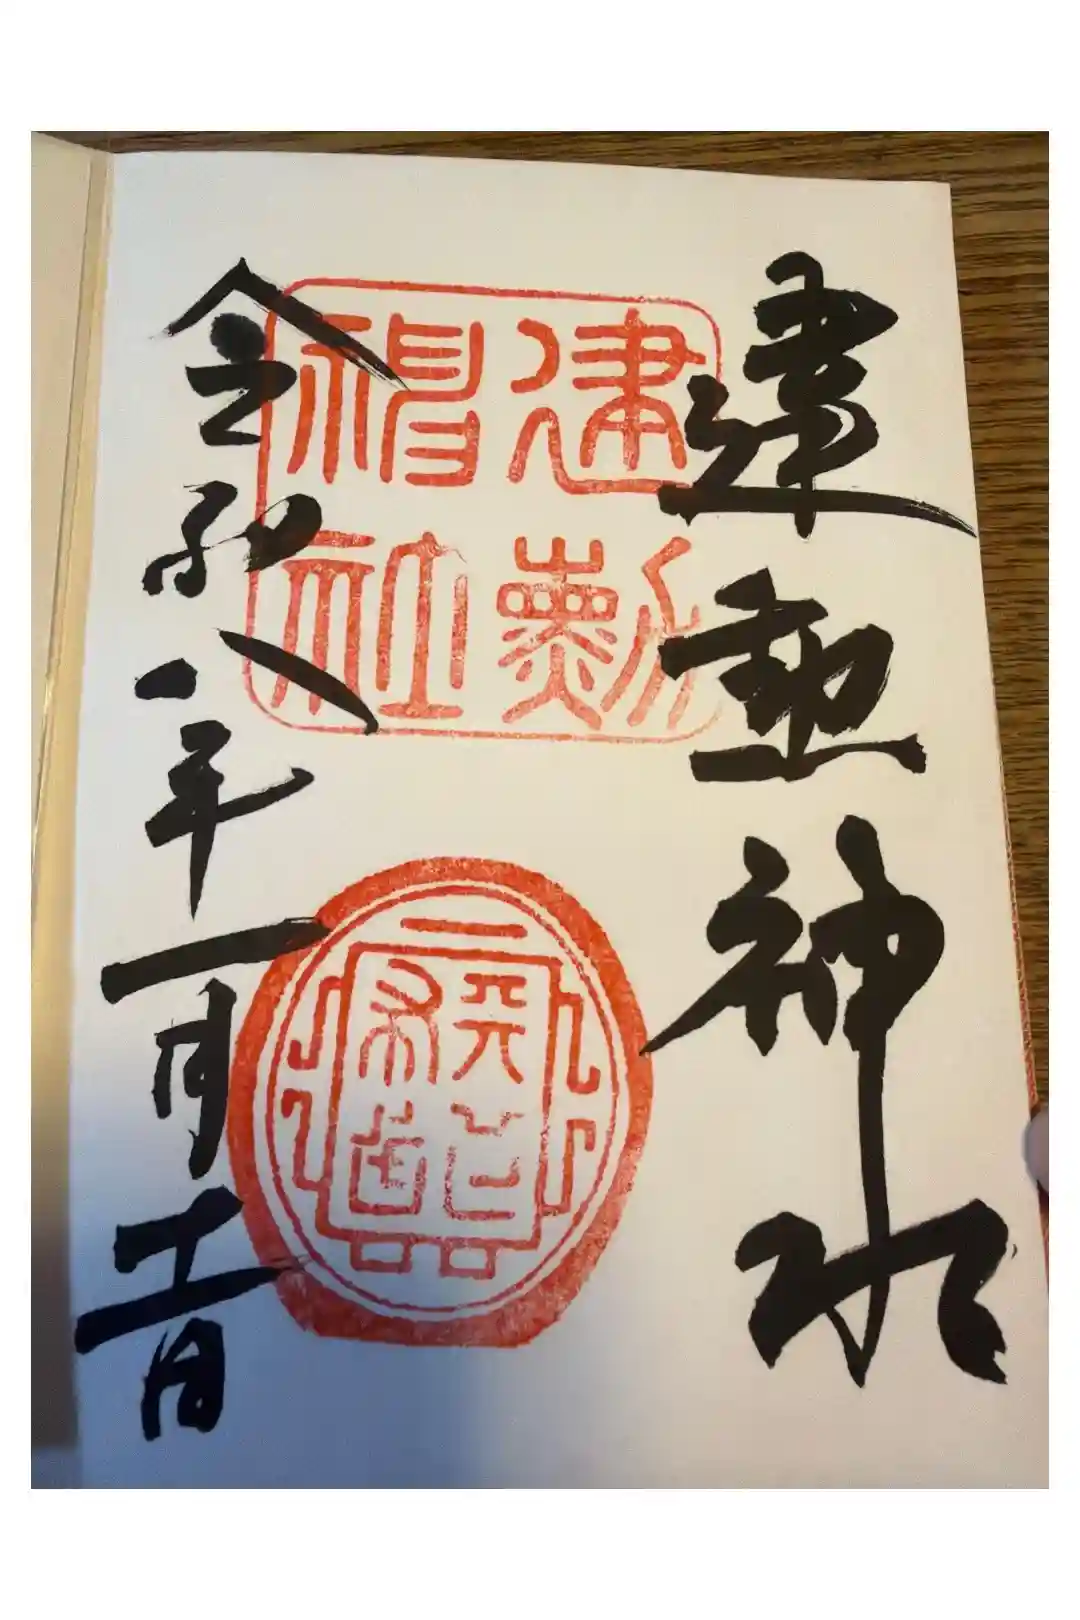 建勲神水
建勲
神社
令和八年一月十一日